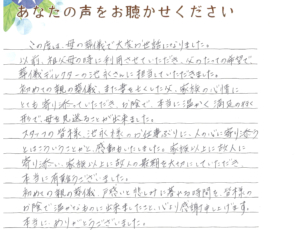 あなたの声をお聴かせください
この度は、母の葬儀で大変お世話になりました。
以前、祖父母の時に利用させていただき、父のたっての希望で
葬儀ディレクターの池永さんに担当していただきました。
初めての親の葬儀、また妻を亡くした父、家族の心情に
とても寄り添っていただき、お陰で、本当に温かく満足のいく
形で母を見送ることが出来ました。
スタッフの皆様、池永様のお仕事ぶりに、人の心に寄り添う
とはこういうことかと、感動をいたしました。家族以上に故人に
寄り添い、家族以上に故人の尊厳を大切にしていただき、
本当に有難うございました。
初めての親の葬儀、戸惑いと悲しみに暮れる時間を、皆様の
お陰で温かなものに出来ましたこと、心より感謝申し上げます。
本当に、ありがとうございました。